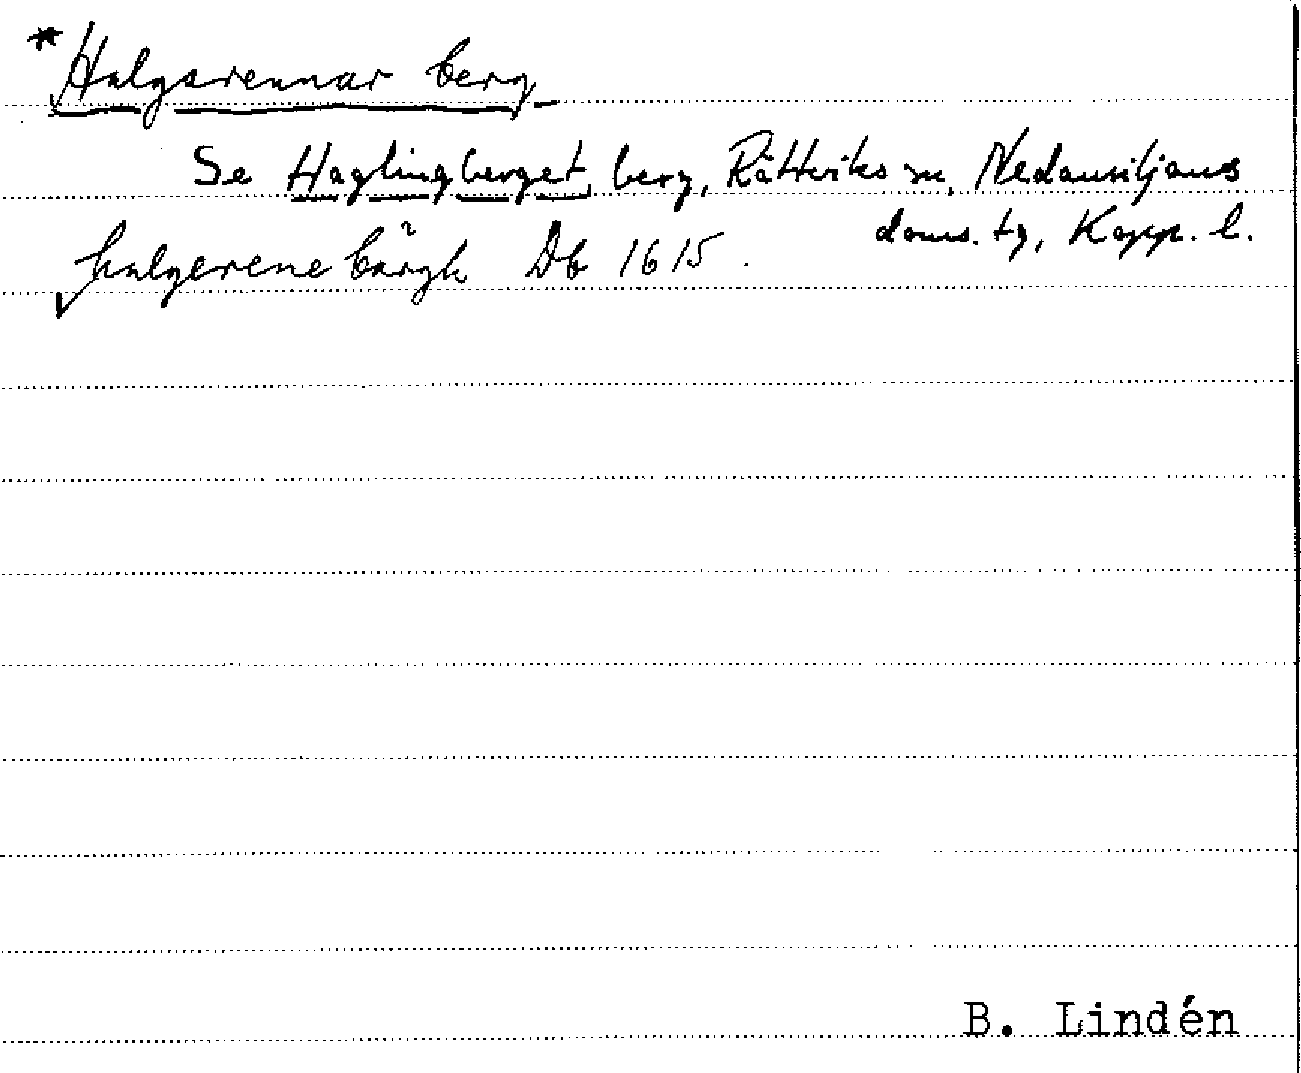 * Halgarennar berg
Se Haglingberget, berg, Rättviks sn, Nedansiljans
doms. tg, Kopp. l.
halgerene bärgh Db 1615.
B. Lindén